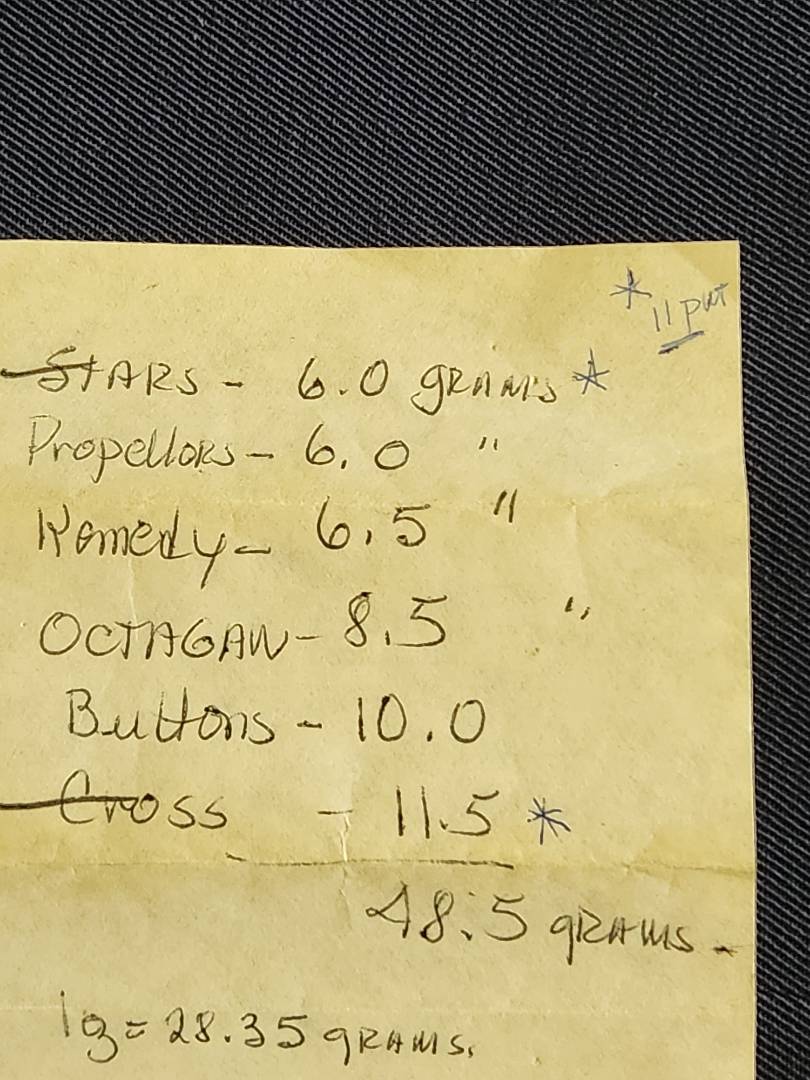 *
11 put
STARS - 6.0 GRAMS *
Propellors - 6.0 "
Remedy - 6.5 "
OCTAGAN - 8.5 "
Buttons - 10.0
Cross - 11.5 *
48.5 GRAMS -
= 28.35 GRAMS.